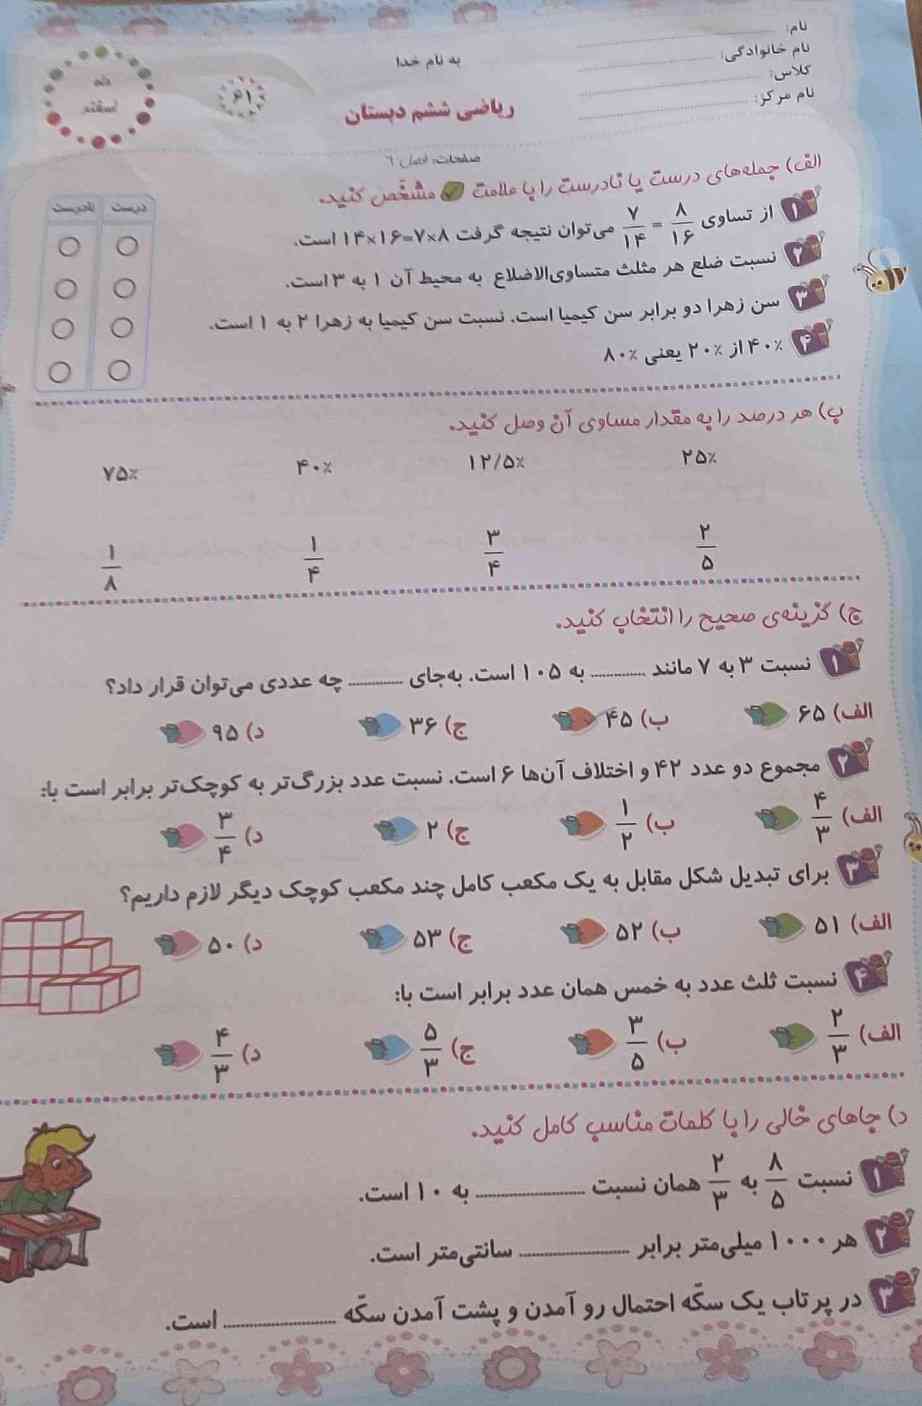 نام:
نام خانوادگی:
کلاس:
نام مرکز:
به نام خدا
ریاضی ششم دبستان
۶۱
ماه
اسفند
صفحات: فصل ۶
الف) جمله‌های درست یا نادرست را با علامت ✓ مشخّص کنید.
درست نادرست
۱ از تساوی ۷/۱۴ = ۸/۱۶ می‌توان نتیجه گرفت ۱۴×۱۶=۷×۸ است.
۲ نسبت ضلع هر مثلث متساوی‌الاضلاع به محیط آن ۱ به ۳ است.
۳ سن زهرا دو برابر سن کیمیا است. نسبت سن کیمیا به زهرا ۲ به ۱ است.
۴ ۴۰٪ از ۲۰٪ یعنی ۸۰٪
ب) هر درصد را به مقدار مساوی آن وصل کنید.
۲۵٪ ۱۲/۵٪ ۴۰٪ ۷۵٪
۲/۵ ۳/۴ ۱/۴ ۱/۸
ج) گزینه‌ی صحیح را انتخاب کنید.
۱ نسبت ۳ به ۷ مانند ........ به ۱۰۵ است. به‌جای ........ چه عددی می‌توان قرار داد؟
الف) ۶۵ ب) ۴۵ ج) ۳۶ د) ۹۵
۲ مجموع دو عدد ۴۲ و اختلاف آن‌ها ۶ است. نسبت عدد بزرگ‌تر به کوچک‌تر برابر است با:
الف) ۴/۳ ب) ۱/۲ ج) ۲ د) ۳/۴
۳ برای تبدیل شکل مقابل به یک مکعب کامل چند مکعب کوچک دیگر لازم داریم؟
الف) ۵۱ ب) ۵۲ ج) ۵۳ د) ۵۰
۴ نسبت ثلث عدد به خمس همان عدد برابر است با:
الف) ۲/۳ ب) ۳/۵ ج) ۵/۳ د) ۴/۳
د) جاهای خالی را با کلمات مناسب کامل کنید.
۱ نسبت ۸/۵ به ۲/۳ همان نسبت ........ به ۱۰ است.
۲ هر ۱۰۰۰ میلی‌متر برابر ........ سانتی‌متر است.
۳ در پرتاب یک سکّه احتمال رو آمدن و پشت آمدن سکّه ........ است.